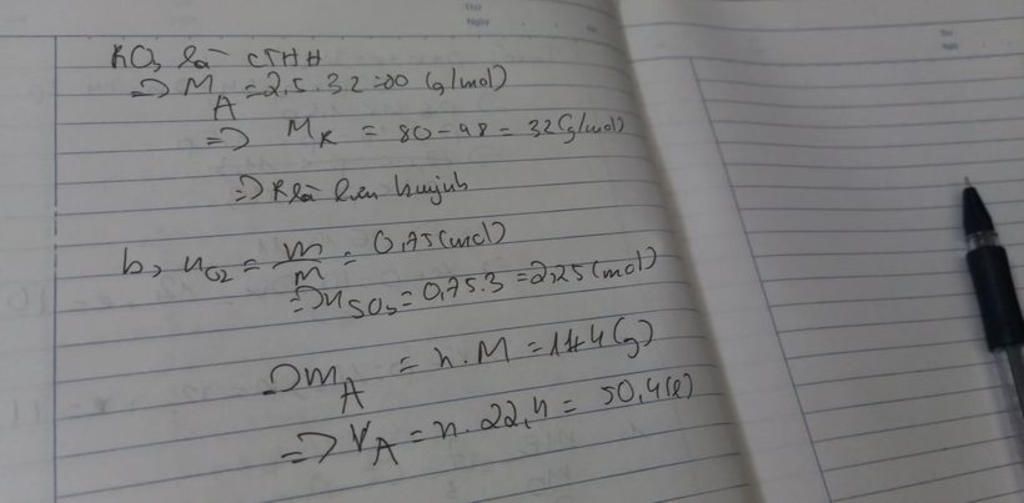 Thứ
Ngày
RO₃ là CTHH
=> M_A = 2,5.32 = 80 (g/mol)
=> M_R = 80 - 48 = 32 (g/mol)
=> R là lưu huỳnh
b, n_O2 = m/M = 0,75 (mol)
=> n_SO₃ = 0,75.3 = 2,25 (mol)
=> m_A = n.M = 144 (g)
=> V_A = n.22,4 = 50,4 (l)